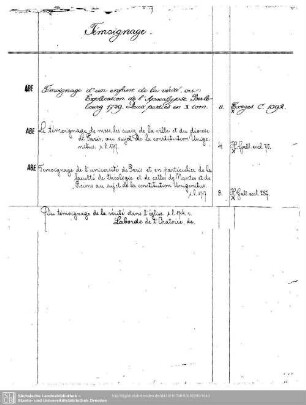 Témoignage.
ABE Témoignage d'un enfant de la vérité ou
Explication de l'Apocalypse
1779. deux parties en 3 tom. 8. Exeget. C. 1098
ABE Le témoignage de mrs. les curez de la ville et du diocese
de Paris, au sujet de la constitution Unigenitus
s. l. 1717. 4. H. gall. eccl. 72.
X
ABE Temoignage de l'université de Paris et en particulier de la
faculté de theologie et de celles de Nantes et de
Rheims au sujet de la constitution Unigenitus.
s. l. 1717 8. H. gall. eccl. 252
X
Du témoignage de la vérité dans l'église. s. l. 1714 v.
Laborde de l'Oratoire
Sächsische Landesbibliothek -
Staats- und Universitätsbibliothek Dresden